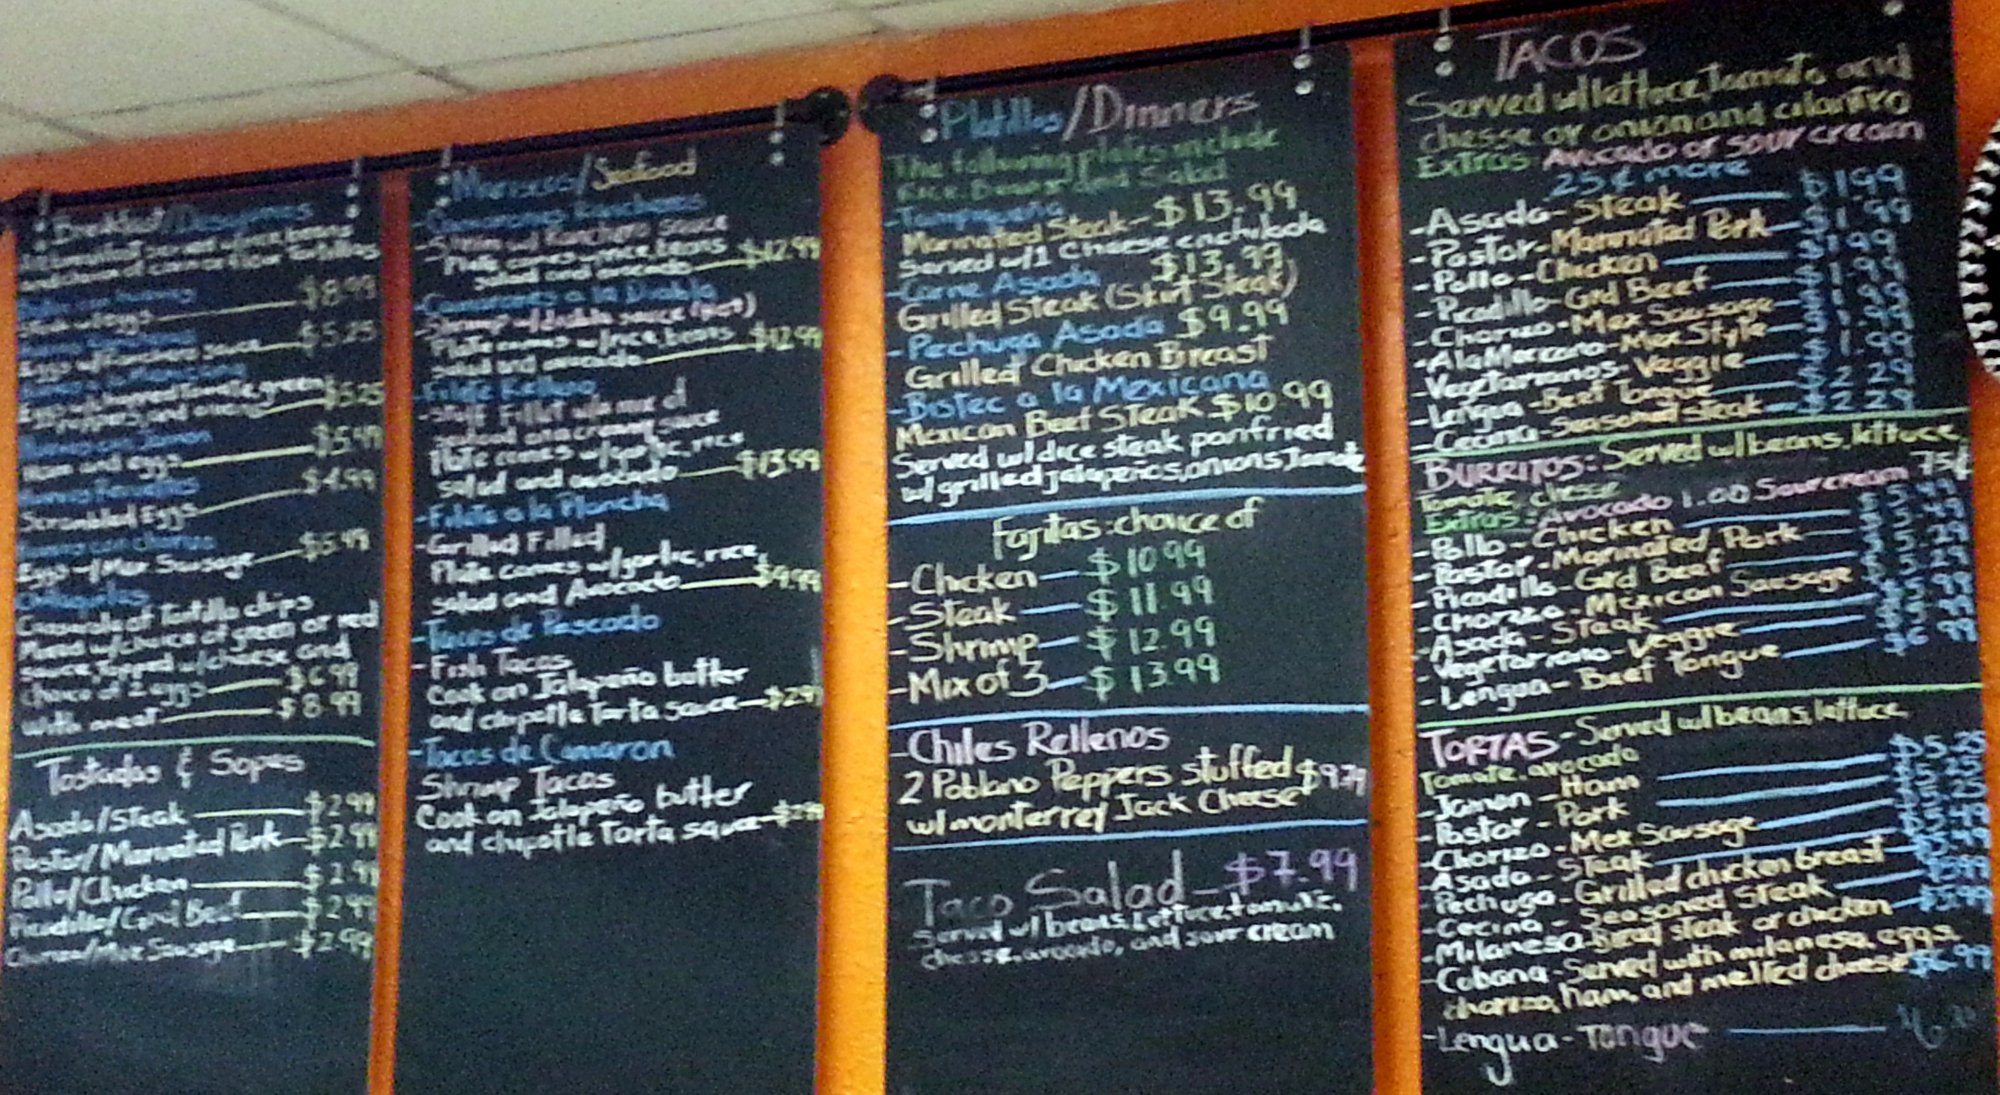 Breakfast/Desayunos
$8.99
Steak w/eggs
$5.25
Eggs w/Ranchero sauce
$5.25
Ham and eggs $5.99
$4.99
Scrambled Eggs
Eggs w/Mex Sausage $5.99
Tortilla chips
w/choice of green or red
sauce, topped w/cheese and
choice of 2 eggs $6.99
with meat $8.99
Tostadas & Sopes
Asada/Steak $2.99
Pastor/Marinated Pork $2.99
Pollo/Chicken $2.99
Picadillo/Grd Beef $2.99
Chorizo/Mex Sausage $2.99
Mariscos/Seafood
-Camarones Rancheros
-Shrimp w/ Ranchero sauce
Plate comes w/rice, beans
salad and avocado $12.99
-Camarones a la Diabla
-Shrimp w/diabla sauce (Hot)
Plate comes w/rice, beans
salad and avocado $12.99
-Filete Relleno
Plate comes w/garlic, rice
salad and avocado $13.99
-Filete a la Plancha
-Grilled Filled
Plate comes w/garlic, rice,
salad and Avocado $9.99
-Tacos de Pescado
-Fish Tacos
Cook on Jalapeño butter
and chipotle Tarta sauce $2.99
-Tacos de Camaron
Shrimp Tacos
Cook on Jalapeño butter
and chipotle Torta
Platillos/Dinners
The following plates include
Rice, Beans and Salad
-Tampiqueña
Marinated Steak-$13.99
Served w/1 Cheese enchilada
-Carne Asada $13.99
Grilled Steak (Skirt Steak)
-Pechuga Asada $9.99
Grilled Chicken Breast
-Bistec a la Mexicana
Mexican Beef Steak $10.99
Served w/dice steak panfried
w/grilled jalapeños, onions, Tomate
Fajitas: choice of
-Chicken $10.99
-Steak $11.99
-Shrimp $12.99
-Mix of 3 $13.99
-Chiles Rellenos
2 Poblano Peppers stuffed $9.79
w/monterrey Jack Cheese
Taco Salad-$7.99
Served w/beans, Lettuce, tomate,
chesse, avocado, and sour cream
TACOS
Served w/lettuce, Tomato and
chesse or onion and cilantro
Extras Avocado or sour cream
25¢ more
-Asada-Steak $1.99
-Pastor-Marinated Pork $1.99
-Pollo-Chicken $1.99
-Picadillo-Grd Beef $1.99
-Chorizo-Mex Sausage
-Ala Mexicana-Mex Style
-Vegetarianos-Veggie $1.99
-Lengua-Beef Tongue $2.29
-Cecina-Seasoned steak $2.29
BURRITOS: Served w/beans, lettuce,
Tomate, chesse
Extras: Avocado 1.00 Sour cream 75¢
-Pollo-Chicken
-Pastor-Marinated Pork
-Picadillo-Grd Beef
-Chorizo-Mexican Sausage
-Asada-Steak
-Vegetariano-Veggie
-Lengua-Beef Tongue
TORTAS-Served w/beans, lettuce,
Tomate, avocado
-Jamon-Ham $5.25
-Pastor-Pork
-Chorizo-Mex Sausage
-Asada-Steak
-Pechuga-Grilled chicken breast
-Cecina-Seasoned Steak
-Milanesa-Bread steak or chicken $5.99
-Cobana-Served with milanesa, eggs,
chorizo, ham, and melted cheese $6.99
-Lengua-Tongue